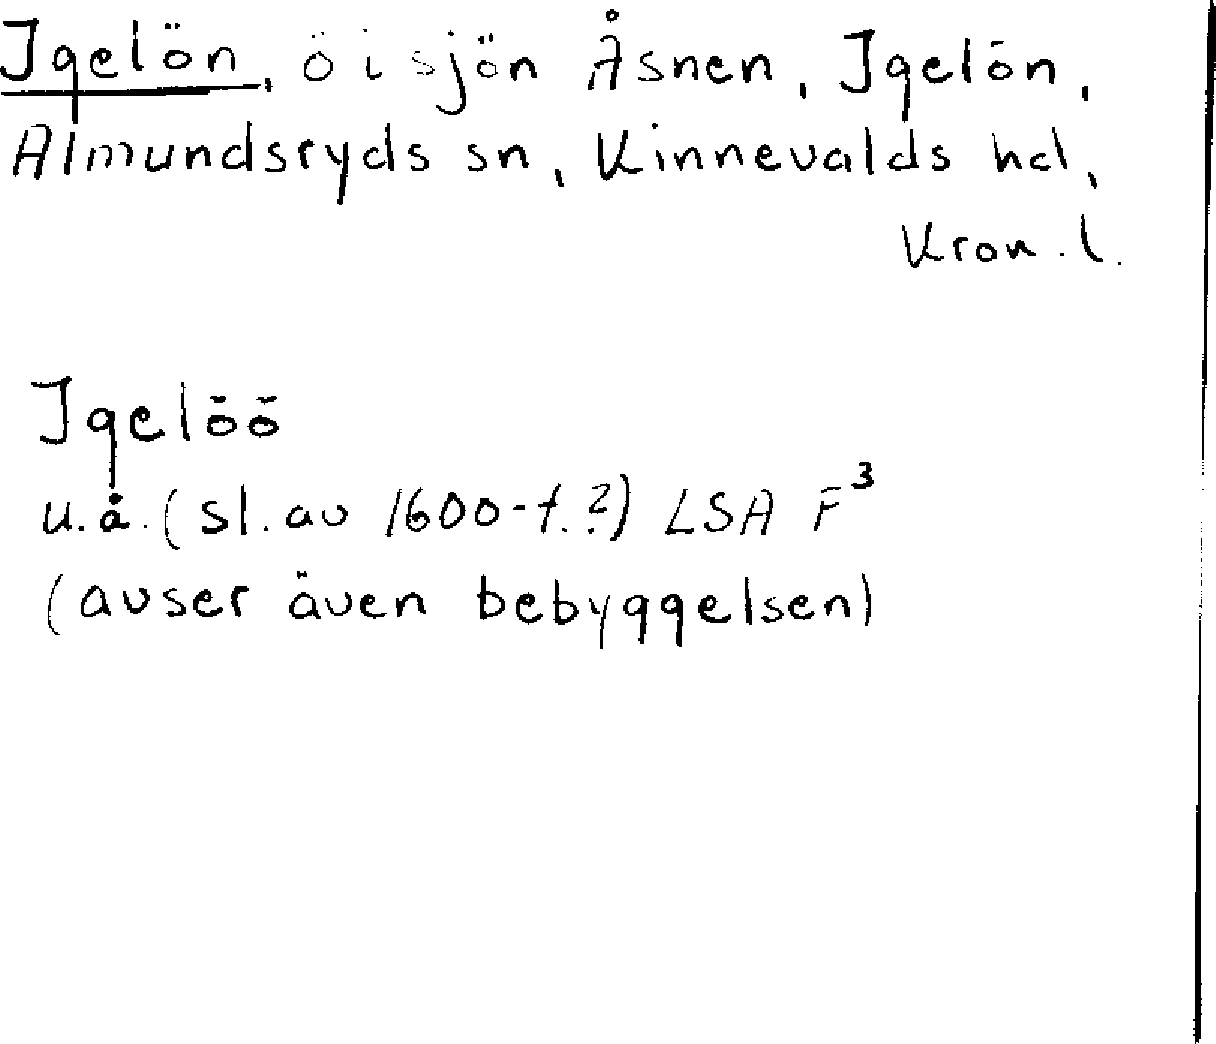 Igelön, ö i sjön Åsnen, Igelön,
Almundsryds sn, Kinnevalds hd,
Kron. l.
Igelöö
u.å. (sl. av 1600-t.?) LSA F³
(avser även bebyggelsen)